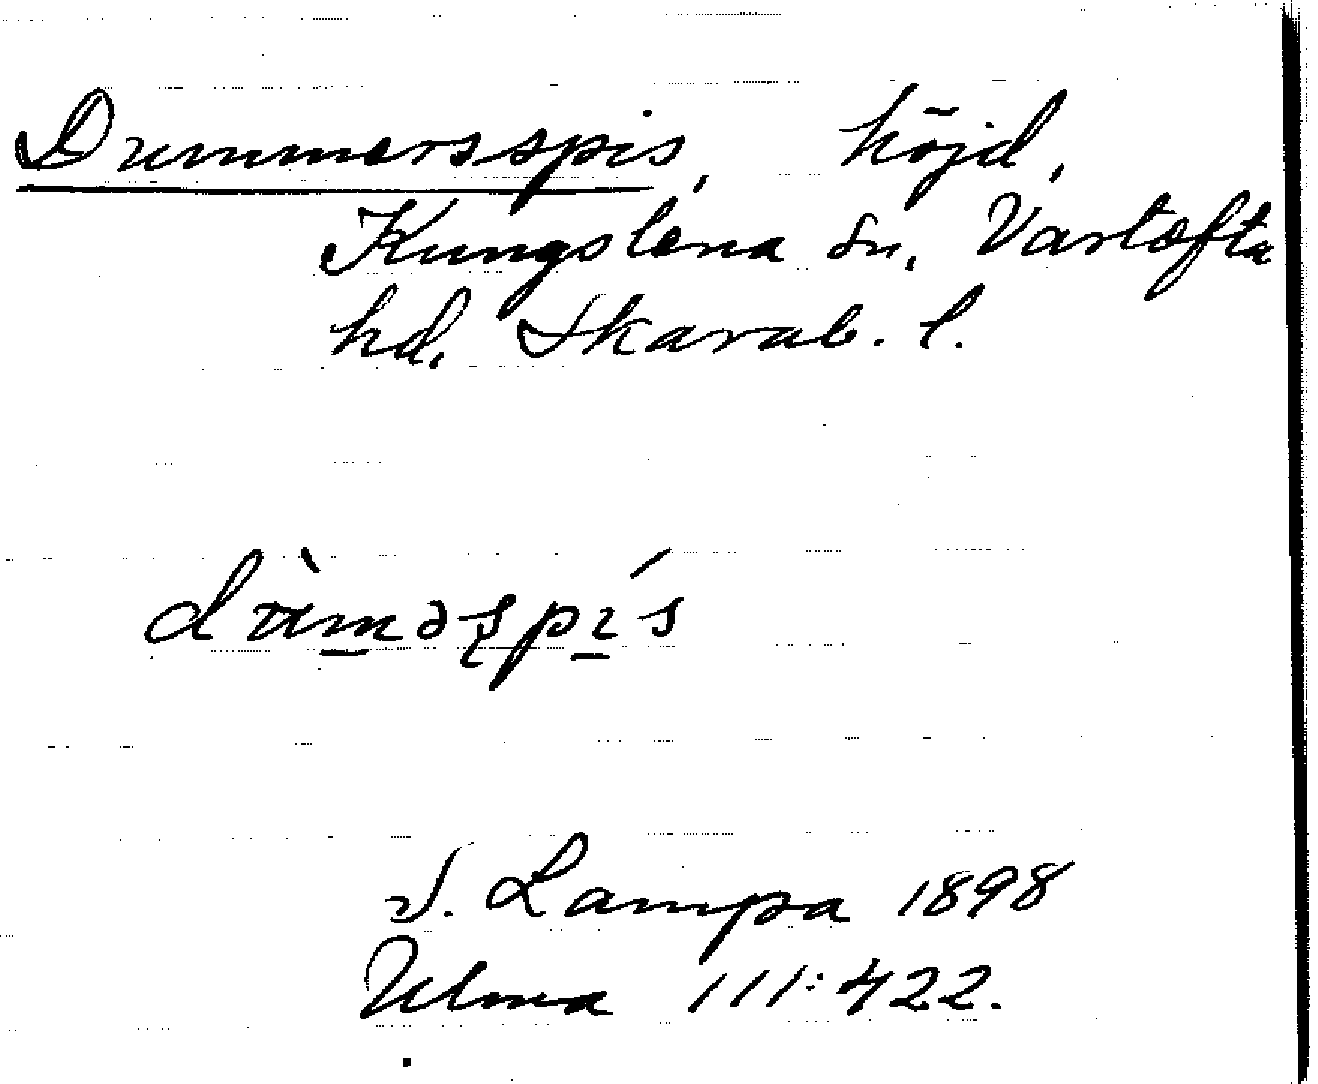 Drummersspis, höjd,
Kungslena sn, Vartofta
hd, Skarab. l.
S. Lampa 1898
Ulma 111:422.